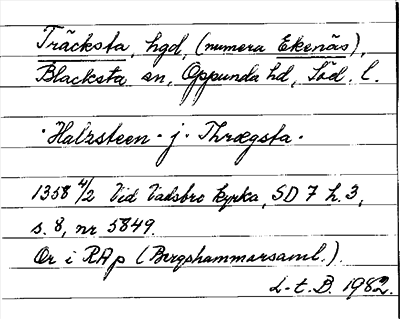 Träcksta, hgd, (numera Ekenäs),
Blacksta sn, Oppunda hd, Söd. l.
"Halzsteen" j "Thrægsta"
1358 4/2 Vid Vadsbro kyrka, SD 7 h. 3,
s. 8, nr 5849
Or i RAp (Bergshammarsaml.).
L-t. B. 1982.